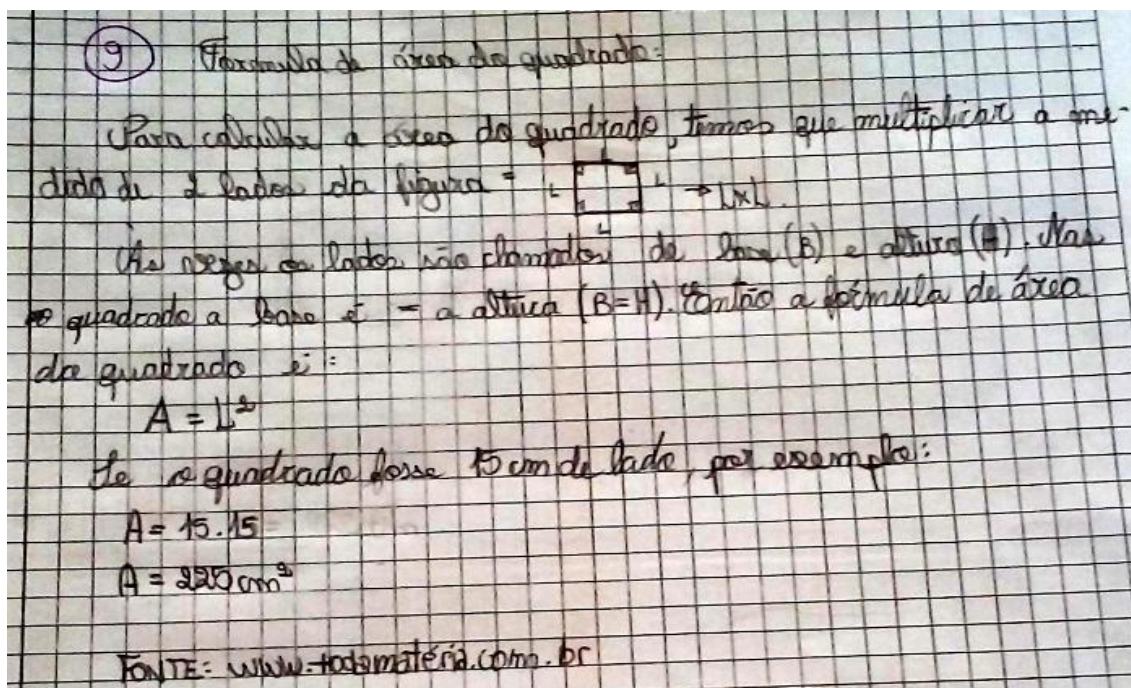 9 Fórmula de área do quadrado:
Para calcular a área do quadrado, temos que multiplicar a me-
dida de 2 lados da figura = L L L L → LxL.
Às vezes os lados são chamados de base (B) e altura (H). Nas
quadrado a base é = a altura (B=H). Então a fórmula de área
do quadrado é:
A = L²
Se o quadrado fosse 15 cm de lado, por exemplo:
A = 15.15
A = 225 cm²
FONTE: www.todamatéria.com.br